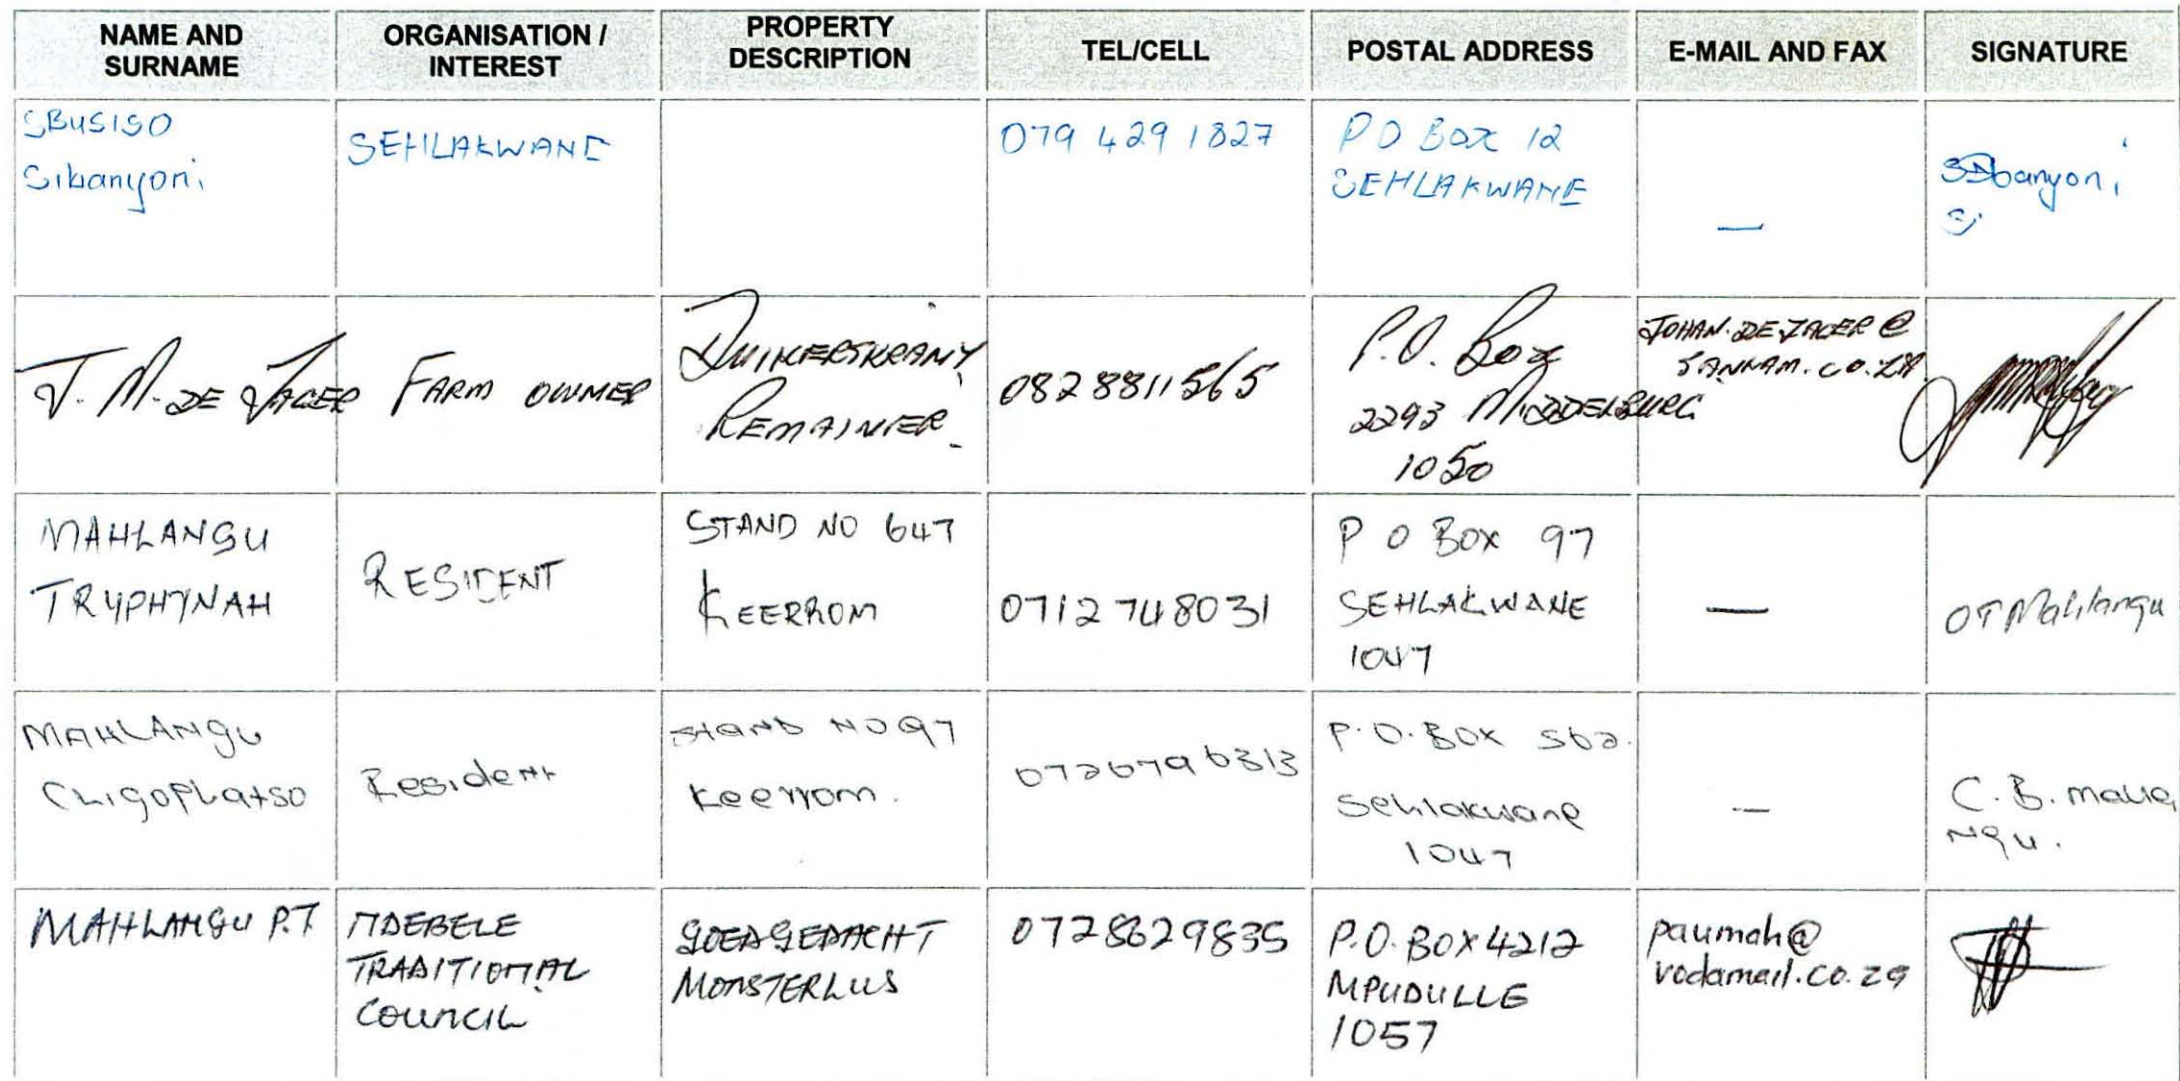 NAME AND
SURNAME
ORGANISATION /
INTEREST
PROPERTY
DESCRIPTION
TEL/CELL
POSTAL ADDRESS
E-MAIL AND FAX
SIGNATURE
SBUSISO
Sibanyoni
SEHLAKWANE
079 429 1827
P O Box 12
SEHLAKWANE
—
Sibanyoni
SJ
J. M. DE JAGER
FARM OWNER
DUIKERSKRANS
REMAINDER
0828811565
P.O. Box
2293 MIDDELBURG
1050
JOHAN.DEJAGER@
SANLAM.CO.ZA
MAHLANGU
TRYPHYNAH
RESIDENT
STAND NO 647
KEERROM
0712748031
P O Box 97
SEHLAKWANE
1047
—
OT Mahlangu
MAHLANGU
Resident
STAND NO 97
Keerrom.
0726796313
P.O.BOX 562.
Sehlakwane
1047
—
C.B. mahla
ngu.
MAHLANGU P.T
NDEBELE
TRADITIONAL
COUNCIL
GOEDGEDACHT
MONSTERLUS
0728629835
P.O.BOX 4212
MPUDULLE
1057
paumah@
vodamail.co.za